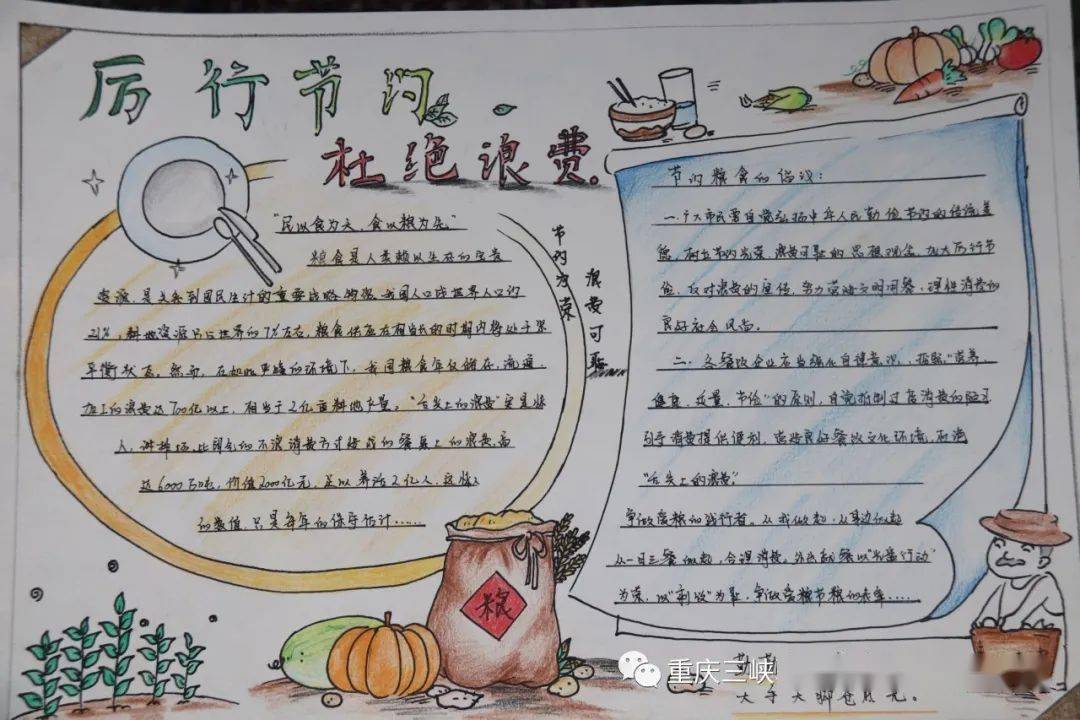 厉行节约，
杜绝浪费。
"民以食为天，食以粮为先。"
粮食是人类赖以生存的宝贵
资源，是关系到国民生计的重要战略物资。我国人口占世界人口的
21%，耕地资源只占世界的7%左右，粮食供应在相当长的时期内将处于紧
平衡状态。然而，在如此严峻的环境下，我国粮食年仅储存、流通、
加工的浪费达700亿以上，相当于2亿亩耕地产量。"舌尖上的浪费"更是惊
人，讲排场、比阔气的不良消费方式造成的餐桌上的浪费高
达6000万吨，价值2000亿元，足以养活2亿人，这惊人
的数值，只是每年的保守估计……
节约为荣
浪费可耻
节约粮食的倡议：
一、广大市民要自觉弘扬中华人民勤俭节约的传统美
德，树立节约光荣、浪费可耻的思想观念，加大厉行节
俭、反对浪费的宣传，努力营造文明用餐、理性消费的
良好社会风尚。
二、各餐饮企业应当强化自律意识，按照"营养、
健康、适量、节俭"的原则，自觉抵制过度消费的陋习
引导消费提供便利，营造良好餐饮文化环境，而非
"舌尖上的浪费。"
争做爱粮的践行者。从我做起，从身边做起
从一日三餐做起，合理消费。外出就餐以"光盘行动"
为荣，以"剩饭"为耻，争做爱粮节粮的表率……
粮
重庆三峡